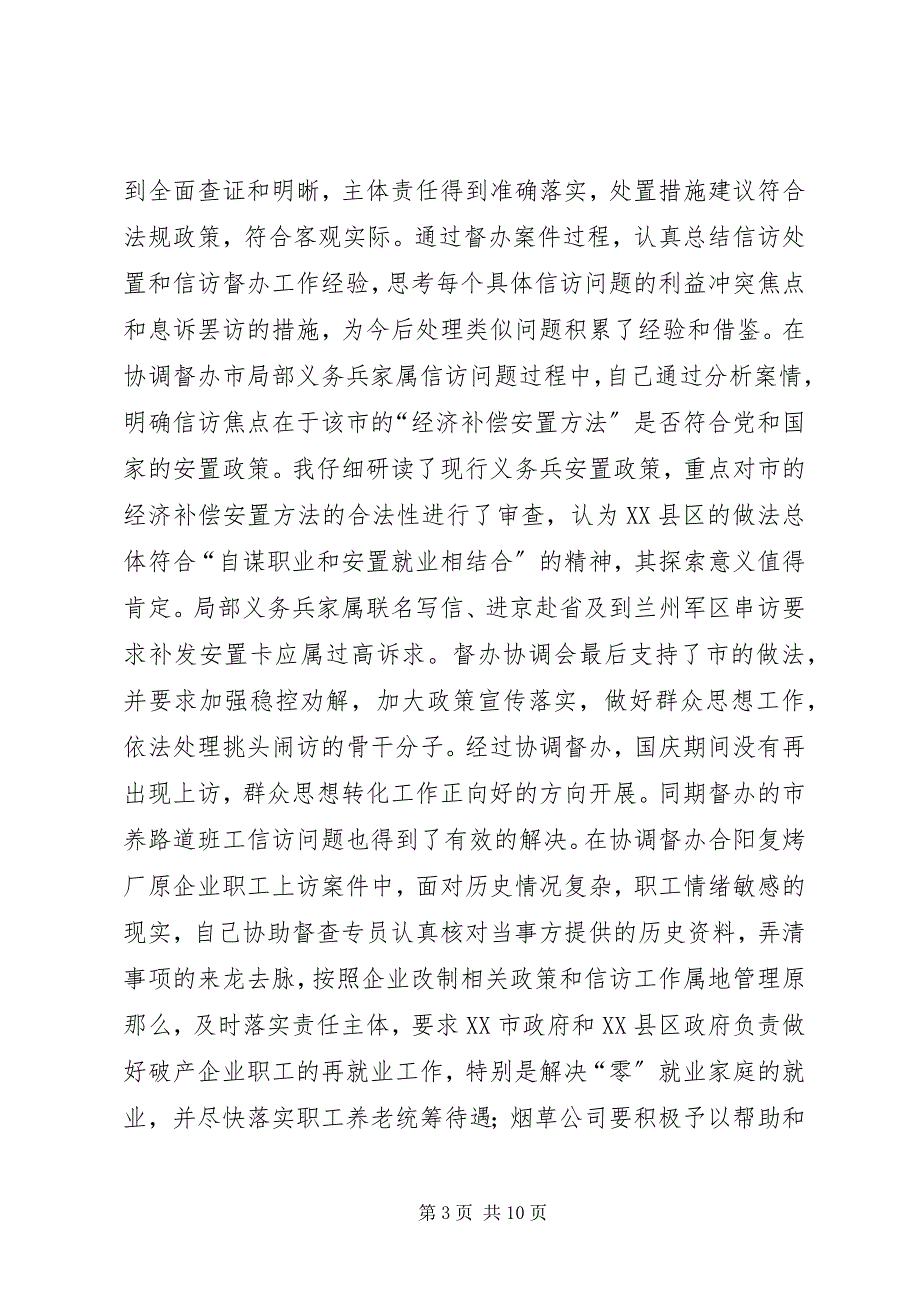 到全面查证和明晰，主体责任得到准确落实，处置措施建议符合
法规政策，符合客观实际。通过督办案件过程，认真总结信访处
置和信访督办工作经验，思考每个具体信访问题的利益冲突焦点
和息诉罢访的措施，为今后处理类似问题积累了经验和借鉴。在
协调督办市局部义务兵家属信访问题过程中，自己通过分析案情，
明确信访焦点在于该市的“经济补偿安置方法〞是否符合党和国
家的安置政策。我仔细研读了现行义务兵安置政策，重点对市的
经济补偿安置方法的合法性进行了审查，认为 XX 县区的做法总
体符合“自谋职业和安置就业相结合〞的精神，其探索意义值得
肯定。局部义务兵家属联名写信、进京赴省及到兰州军区串访要
求补发安置卡应属过高诉求。督办协调会最后支持了市的做法，
并要求加强稳控劝解，加大政策宣传落实，做好群众思想工作，
依法处理挑头闹访的骨干分子。经过协调督办，国庆期间没有再
出现上访，群众思想转化工作正向好的方向开展。同期督办的市
养路道班工信访问题也得到了有效的解决。在协调督办合阳复烤
厂原企业职工上访案件中，面对历史情况复杂，职工情绪敏感的
现实，自己协助督查专员认真核对当事方提供的历史资料，弄清
事项的来龙去脉，按照企业改制相关政策和信访工作属地管理原
那么，及时落实责任主体，要求 XX 市政府和 XX 县区政府负责做
好破产企业职工的再就业工作，特别是解决“零〞就业家庭的就
业，并尽快落实职工养老统筹待遇；烟草公司要积极予以帮助和
第 3 页 共 10 页